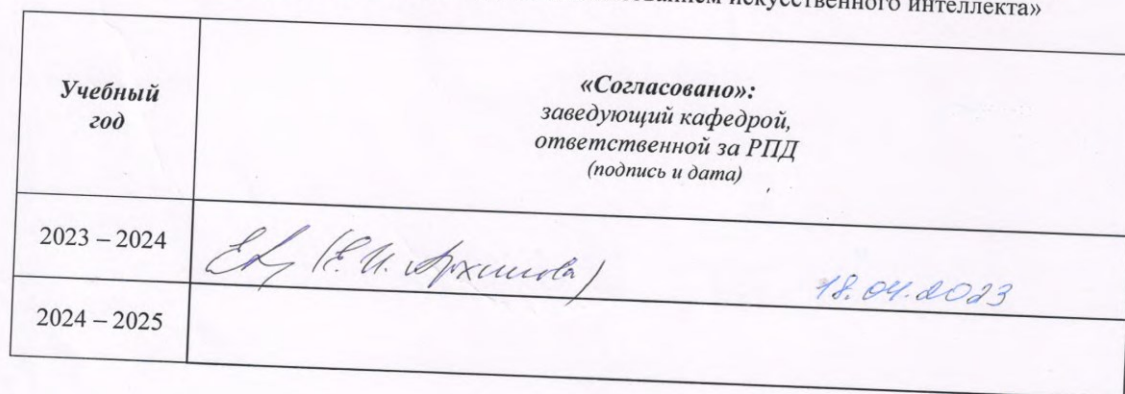 искусственного интеллекта»
Учебный
год
«Согласовано»:
заведующий кафедрой,
ответственной за РПД
(подпись и дата)
2023 – 2024
(Е. И. Архипова)
18.04.2023
2024 – 2025